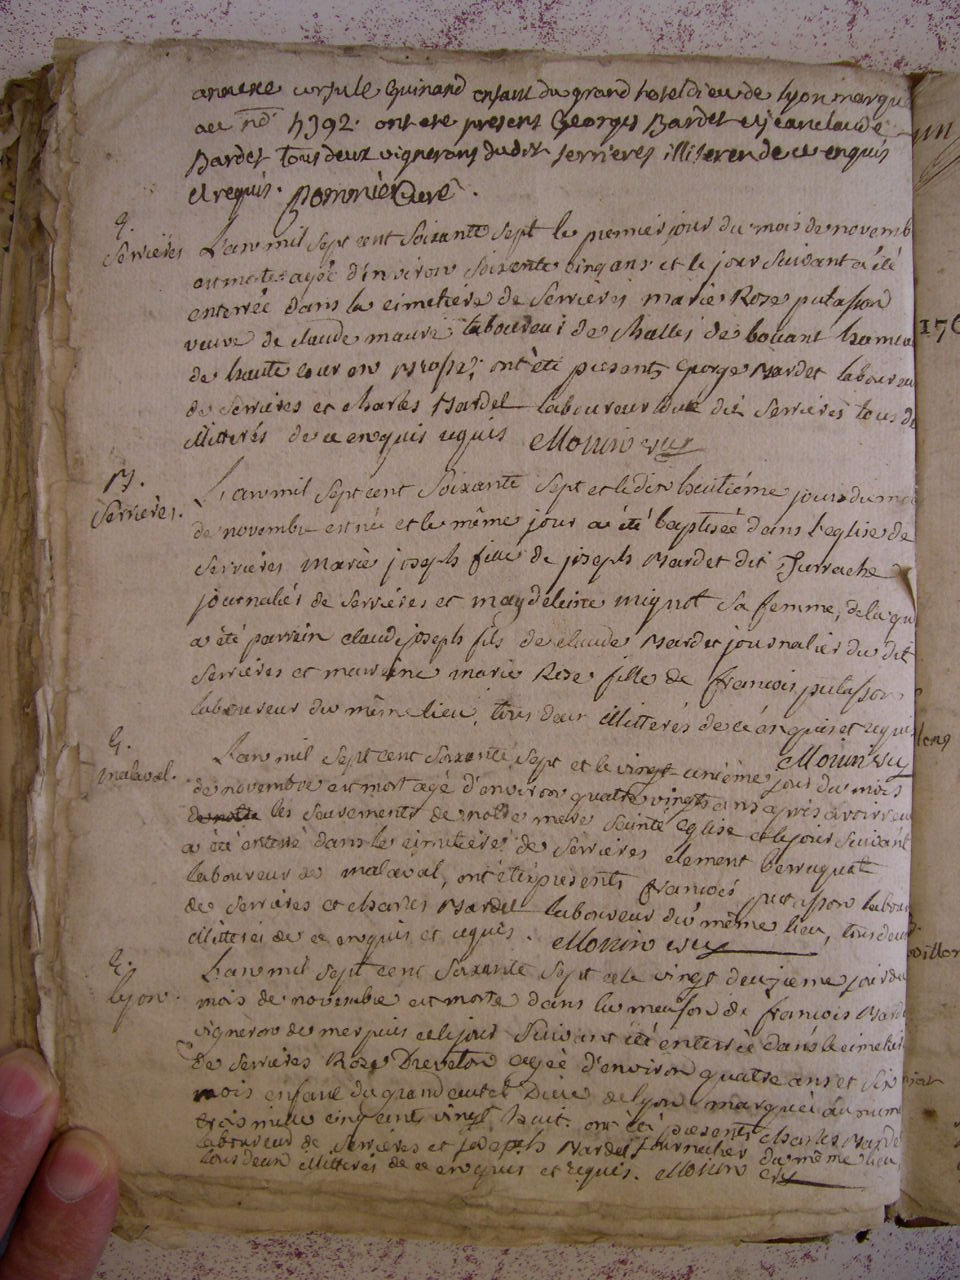 annexe ursule Quinard enfant du grand hotel dieu de lyon marqué
au nº. 4392. ont été présent Georges Bardet et jean claude
Bardet tous deux vignerons du dit serrieres illiteré de ce enquis
et requis. Pommier Curé.
E.
Serrières L'an mil sept cent soixante sept le premier jour du mois de novemb
est morte agée d'environ soixente cinq ans et le jour suivant a été
enterrée dans le cimetière de Serrières marie Rose putasson
veuve de claude laboureur de de hameau
de haute cour en ont été presents george Mardet laboureu
de Serrières et charles Mardel laboureur du dit Serrières tous d
illitterés de ce enquis requis Monin vic
B.
Serrières. L'an mil sept cent soixante sept et le dix heutiéme jour du mo
de novembre est née et le même jour a été baptisée dans l'eglise de
Serrières marie joseph fille de joseph Mardet dit
journalier de Serrières et magdeleine mignot sa femme, de la qu
a été parrein claude joseph fils de claude Mardet journalier du dit
Serrières et marreine marie Rose fille de francois putasson
laboureur du même lieu, tous deux illitterés de ce enquis et requis
Monin vic
E.
malaval. L'an mil sept cent soixante sept et le vingt unième jour du mois
de novembre est mort agé d'environ quatre vingts ans après avoir reçu
de notre les sacrements de notre mere sainte eglise et le jour suivant
a été enterré dans le cimetière de Serrières clement berruquat
laboureur de malaval, ont été présents francois putasson labou
de Serrières et charles Mardel laboureur du même lieu, tous deux
illitterés de ce enquis et requis. Monin vic
E.
lyon. L'an mil sept cent soixante sept et le vingt deuzieme jour du
mois de novembre est morte dans la meuson de francois Mard
vigneron de merpuis et le jour suivant été enterrée dans le cimetier
de Serrières Rose Dreveton agée d'environ quatre ans et six
mois enfant du grand autel Dieu de lyon marquée au numero
trois mille cinq cent vingt huit. ont été presents charles Marde
laboureur de Serrières et joseph Mardel du même lieu,
tous deux illitterés de ce enquis et requis. Monin vic
176